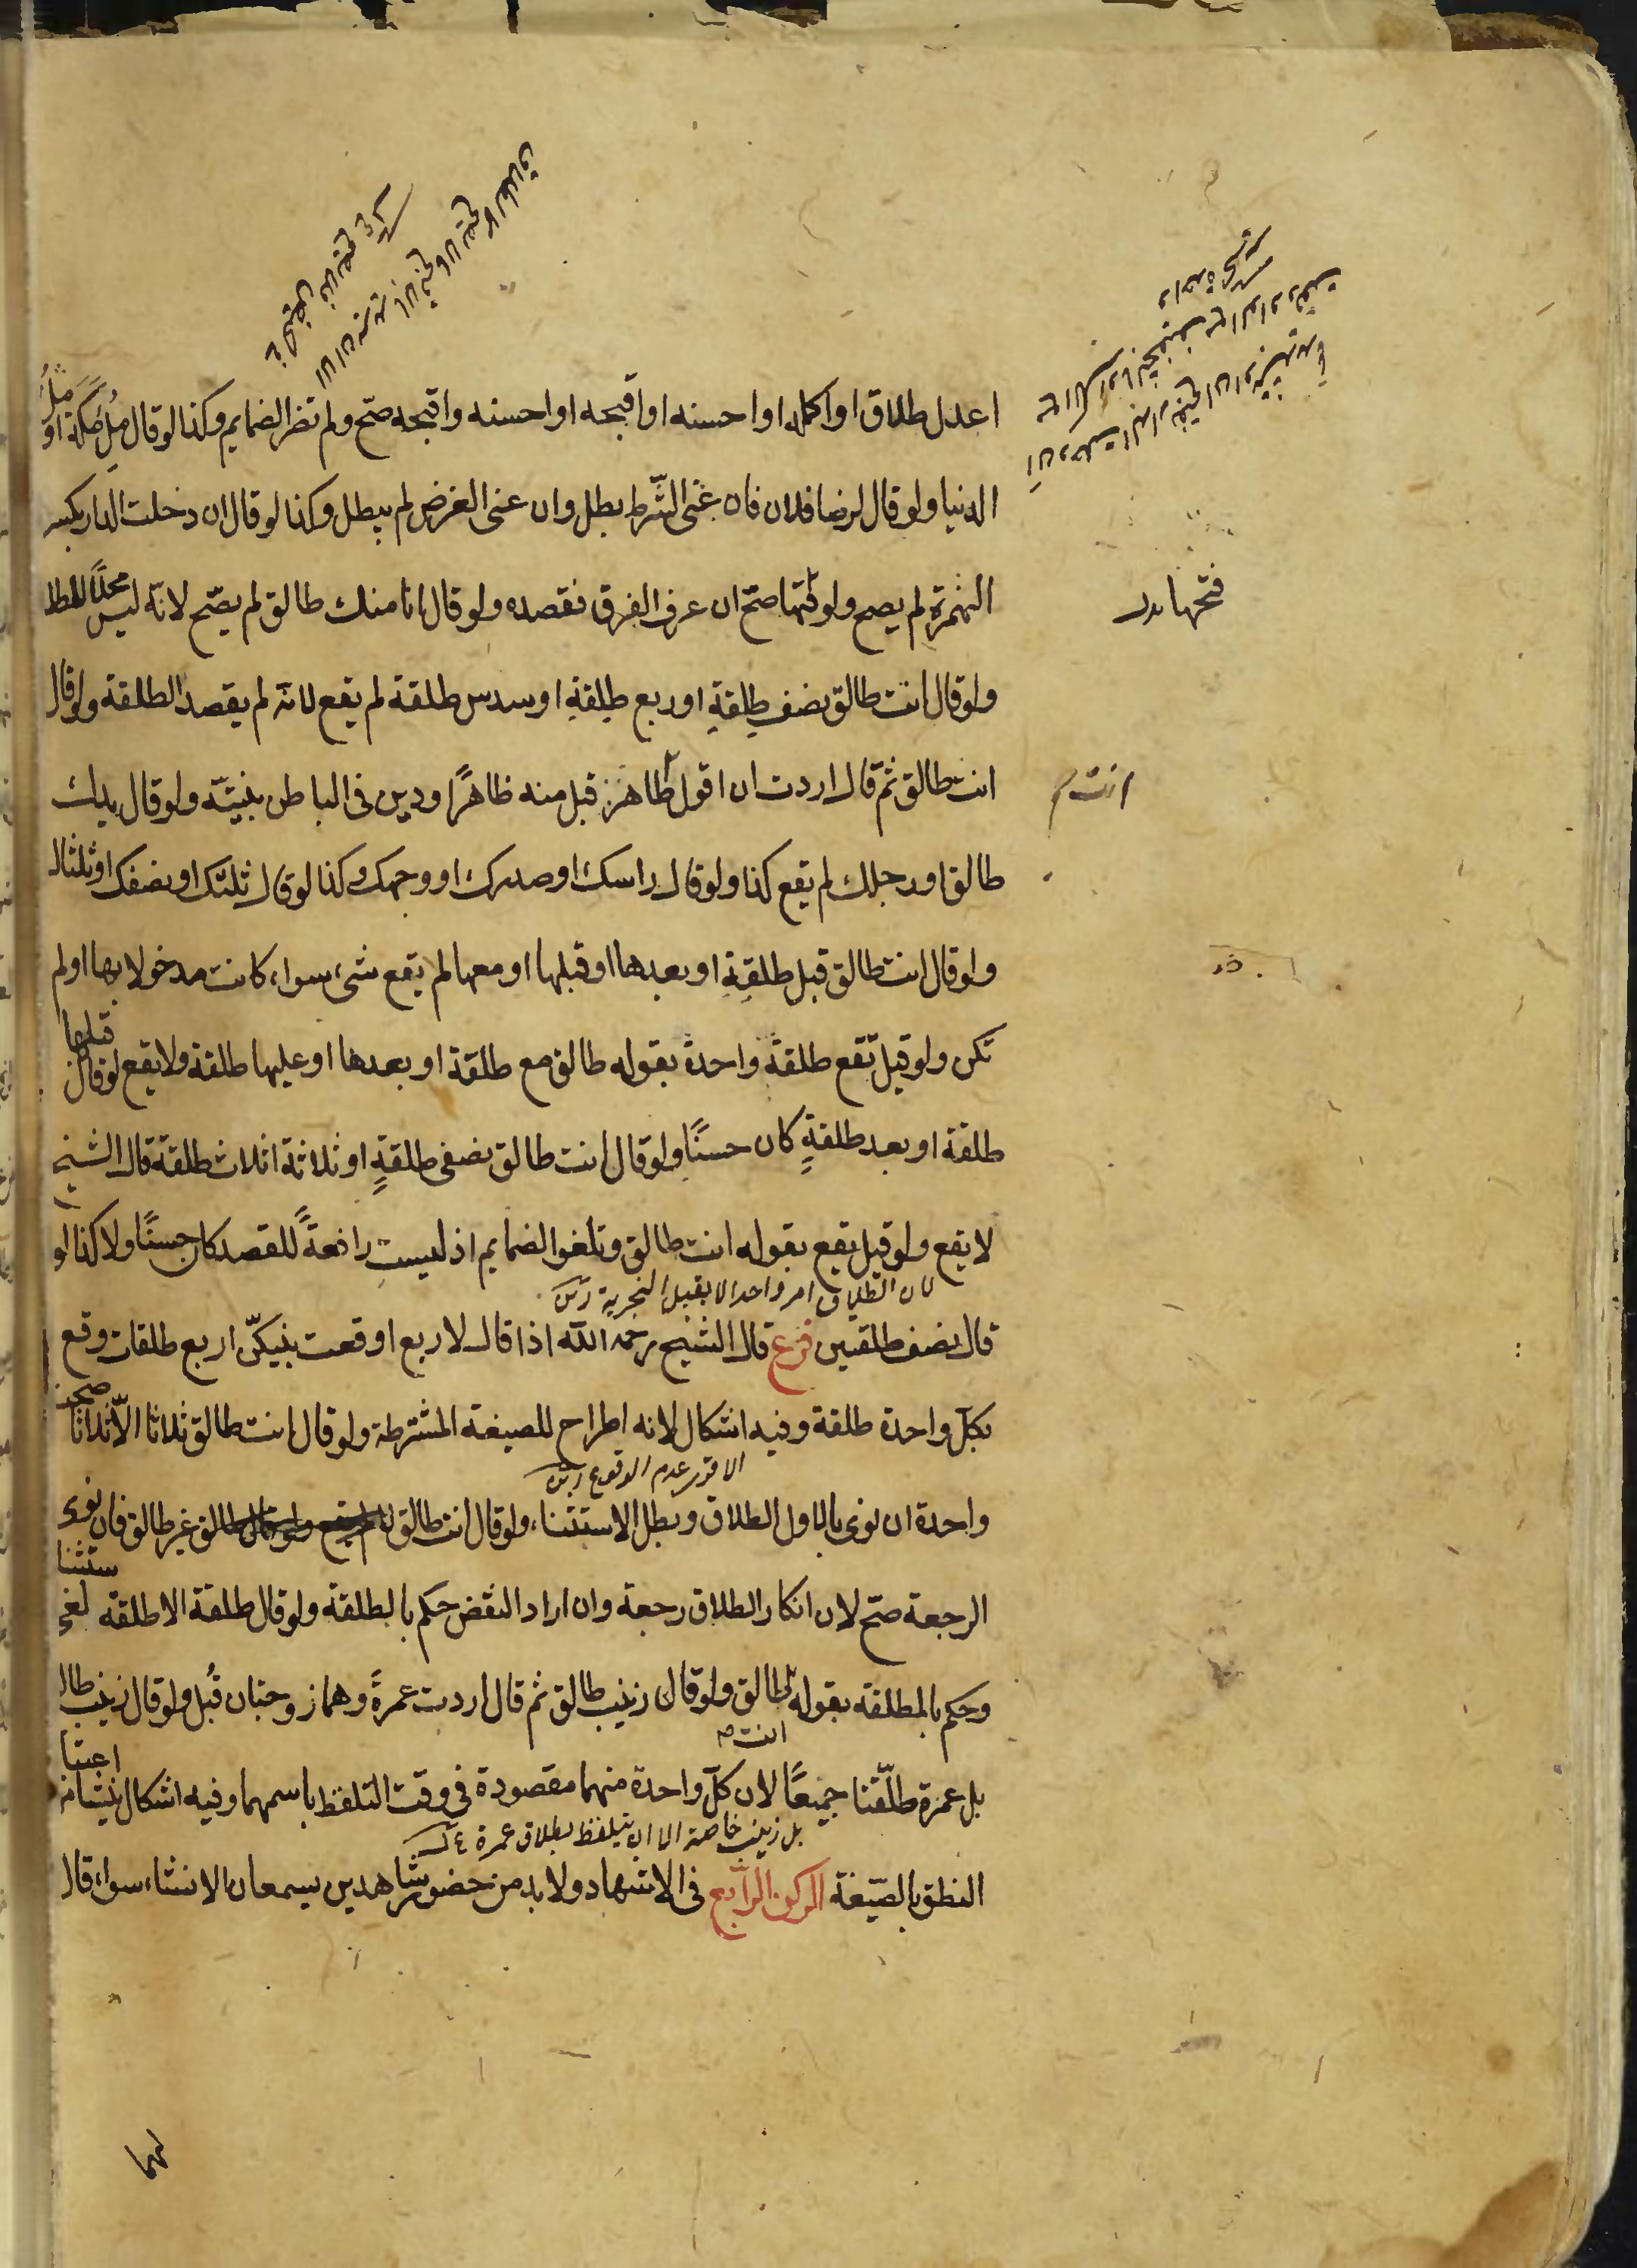 اعدل طلاق او اكمله او احسنه او اقبحه او احسنه واقبحه صح ولم تضر الضمايم وكذا لو قال ملء مكة او ملء
الدنيا ولو قال لرضا فلان فان عنى الشرط بطل وان عنى الغرض لم يبطل وكذا لو قال ان دخلت الدار بكسر
الهمزة لم يصح ولو فتحها صح ان عرف الفرق فقصده ولو قال انا منك طالق لم يصح لانه ليس محلا للطلا
فتحها بدل
ولو قال انت طالق نصف طلقة او ربع طلقة او سدس طلقة لم يقع لانه لم يقصد الطلقة ولو قال
انت طالق ثم قال اردت ان اقول طاهر قبل منه ظاهرًا ودين فى الباطن بنيته ولو قال يدك
انت م
طالق او رجلك لم يقع كذا ولو قال راسك او صدرك او وجهك وكذا لو قال ثلثك او نصفك او ثلثاك
ولو قال انت طالق قبل طلقة او بعدها او قبلها او معها لم يقع شىء سواء كانت مدخولا بها او لم
تكن ولو قيل تقع طلقة واحدة بقوله طالق مع طلقة او بعدها او عليها طلقة ولا يقع لو قال قبلها
طلقة او بعد طلقةٍ كان حسنًا ولو قال انت طالق نصفى طلقةٍ او ثلاثة اثلاث طلقة قال الشيخ
لا يقع ولو قيل يقع بقوله انت طالق وتلغوا الضمايم اذ ليست رافعةً للقصد كان حسنًا ولا كذا لو
لان الطلاق امر واحد لا يقبل التجزية
قال نصف طلقتين فرع قال الشيخ رحمه الله اذا قال لاربع اوقعت بينكنّ اربع طلقات وقع
بكل واحدة طلقة وفيه اشكال لانه اطراح للصيغة المشترطة ولو قال انت طالق ثلاثا الا ثلاثا صحت
الاقوى عدم الوقوع
واحدة ان نوى بالاول الطلاق وبطل الاستثناء ولو قال انت طالق غير طالق فان نوى
الرجعة صح لان انكار الطلاق رجعة وان اراد النقض حكم بالطلقة ولو قال طلقة الا طلقة لغى ستثنا
وحكم بالطلقة بقوله طالق ولو قال زينب طالق ثم قال اردت عمرة وهما زوجتان قُبل ولو قال زينب طالق
انت م
بل عمرة طلّقتا جميعًا لان كلّ واحدة منهما مقصودة فى وقت التلفظ باسمها وفيه اشكال ينشا من اعتبا
بل زينب خاصة الا ان يتلفظ بطلاق عمرة
النطق بالصيغة الركن الرابع فى الاشهاد ولا بد من حضور شاهدين يسمعان الانشاء سواء قال
لهما